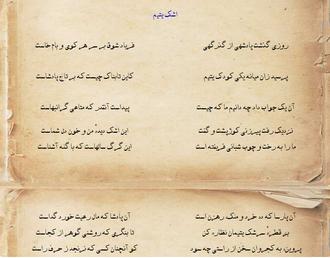 اشک یتیم
روزی گذشت پادشهی از گذرگهی فریاد شوق بر سر هر کوی و بام خاست
پرسید زان میانه یکی کودک یتیم کاین تابناک چیست که بر تاج پادشاست
آن یک جواب داد چه دانیم ما که چیست پیداست آنقدر که متاعی گرانبهاست
نزدیک رفت پیرزنی کوژپشت و گفت این اشک دیده من و خون دل شماست
ما را به رخت و چوب شبانی فریفته است این گرگ سالهاست که با گله آشناست
آن پارسا که ده خرد و ملک رهزن است آن پادشا که مال رعیت خورد گداست
بر قطره سرشک یتیمان نظاره کن تا بنگری که روشنی گوهر از کجاست
پروین، به کجروان سخن از راستی چه سود کو آنچنان کسی که نرنجد ز حرف راست